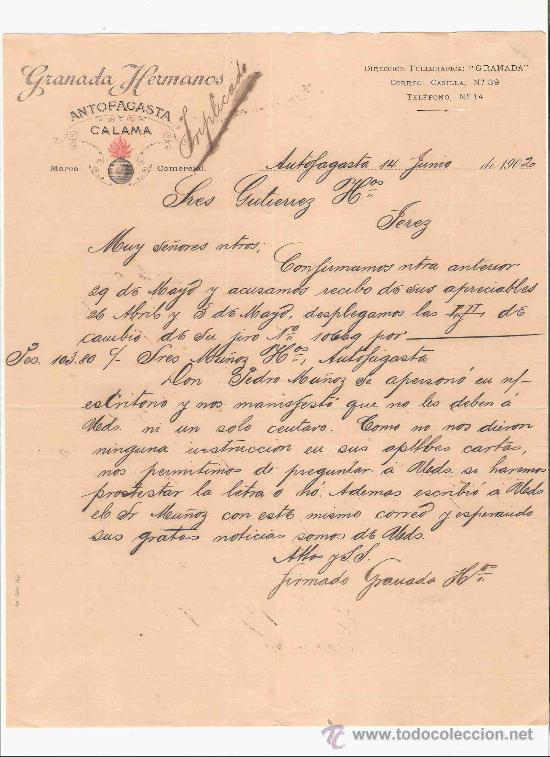 Granada Hermanos
ANTOFAGASTA
Y
CALAMA
Marca Comercial.
Duplicado
DIRECCION TELEGRAFICA: "GRANADA"
CORREO: CASILLA, Nº 39
TELÉFONO, Nº 14
Antofagasta 14 Junio de 1902
Sres Gutierrez Hos
Jerez
Muy Señores ntros;
Confirmamos ntra anterior
29 de Mayo y acusamos recibo de sus apreciables
26 Abril y 3 de Mayo, desplegamos las de
cambio de Su jiro No 10669 por
Ps. 103.80 c/ Sres Muñoz Hos, Antofagasta
Don Pedro Muñoz se apersonó en n/
escritorio y nos manifestó que no les deben á
Uds. ni un solo centavo. Como no nos dieron
ninguna instruccion en sus cartas,
nos permitimos de preguntar á Uds. si haremos
protestar la letra o nó. Ademas escribió a Uds
el Sr Muñoz con este mismo correo y esperando
sus gratas noticias somos de Uds.
Attos y S.S.
firmado Granada Hos
www.todocoleccion.net